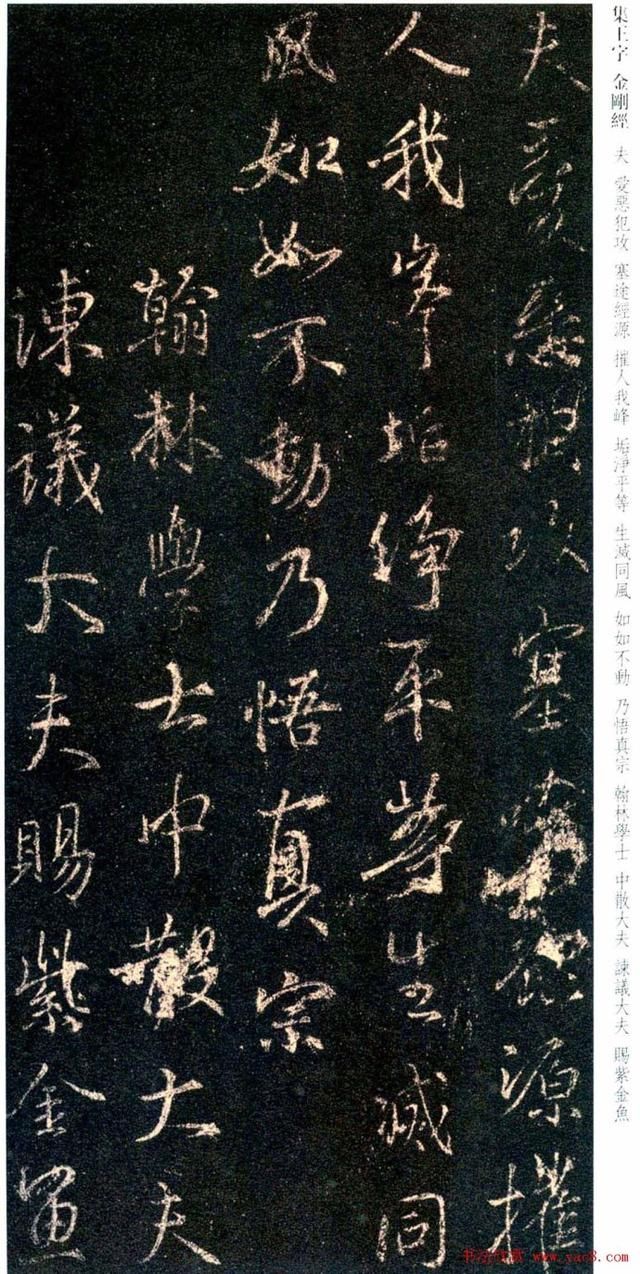 集王字 金剛經 夫 愛惡犯攻 塞途經源 摧人我峰 垢淨平等 生滅同風 如如不動 乃悟真宗 翰林學士 中散大夫 諫議大夫 賜紫金魚
夫愛惡犯攻塞源摧
人我峯垢淨平等生滅同
風如如不動乃悟真宗
翰林學士中散大夫
諫議大夫賜紫金魚
书法欣赏 www.yac8.com